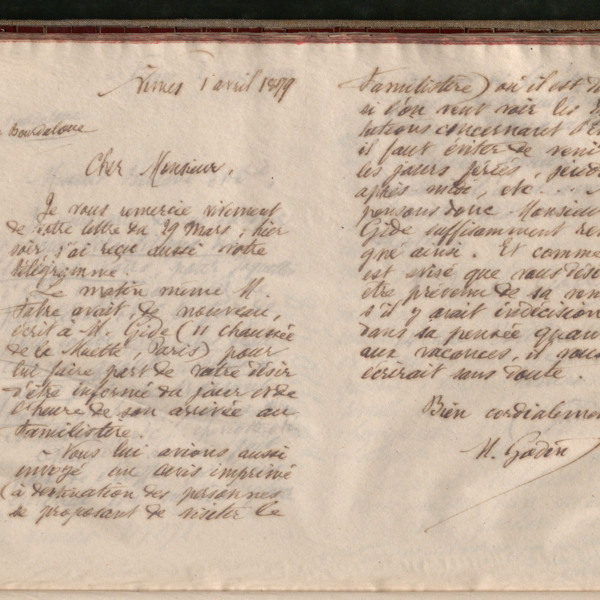 Nîmes 1 avril 1899
Bourdaloue
Cher Monsieur,
Je vous remercie vivement
de votre lettre du 29 mars ; hier
soir j'ai reçu aussi votre
télégramme.
Le matin même M.
Fabre avait, de nouveau,
écrit à M. Gide (11 chaussée
de la Muette, Paris) pour
lui faire part de votre désir
d'être informé du jour et de
l'heure de son arrivée au
Familistère.
Nous lui avions aussi
envoyé un avis imprimé
(à destination des personnes
se proposant de visiter le
Familistère) où il est d
si l'on veut voir les
tutions concernant l'E
il faut éviter de veni
les jours fériés, jeud
après midi, etc...
pensons donc Monsieur
Gide suffisamment ren
gné ainsi. Et comme
est avisé que vous dési
être prévenu de sa ven
s'il y avait indécision
dans sa pensée quan
aux vacances, il vous
écrirait sans doute.
Bien cordialeme
M. Godin